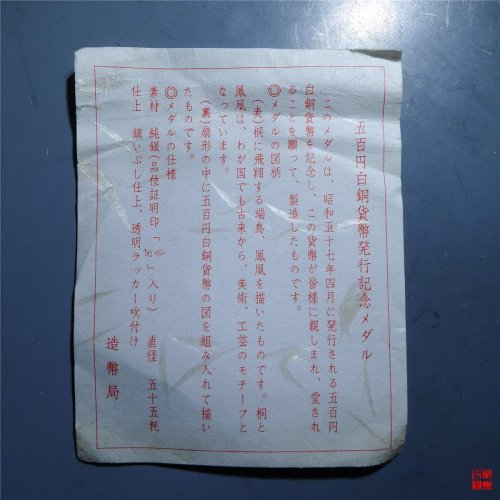 五百円白銅貨幣発行記念メダル
このメダルは、昭和五十七年四月に発行される五百円
白銅貨幣を記念し、この貨幣が皆様に親しまれ、愛され
ることを願って、製造したものです。
◎メダルの図柄
(表)桐に飛翔する瑞鳥、鳳凰を描いたものです。桐と
鳳凰は、わが国でも古来から、美術、工芸のモチーフと
なっています。
(裏)扇形の中に五百円白銅貨幣の図を組み入れて描い
たものです。
◎メダルの仕様
素材 純銀(品位証明印「」入り) 直径 五十五粍
仕上 銀いぶし仕上、透明ラッカー吹付け
造幣局